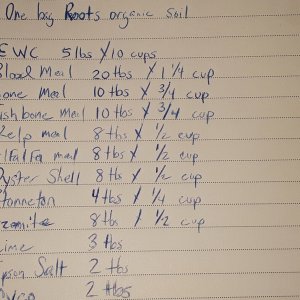 One bag Roots organic Soil
EWC 5 lbs X 10 cups
Blood Meal 20 tbs X 1 1/4 cup
Bone Meal 10 tbs X 3/4 cup
Fishbone Meal 10 tbs X 3/4 cup
Kelp meal 8 tbs X 1/2 cup
Alfalfa meal 8 tbs X 1/2 cup
Oyster Shell 8 tbs X 1/2 cup
4 tbs X 1/4 cup
Azomite 8 tbs X 1/2 cup
Lime 3 tbs
Epson Salt 2 tbs
2 tbs